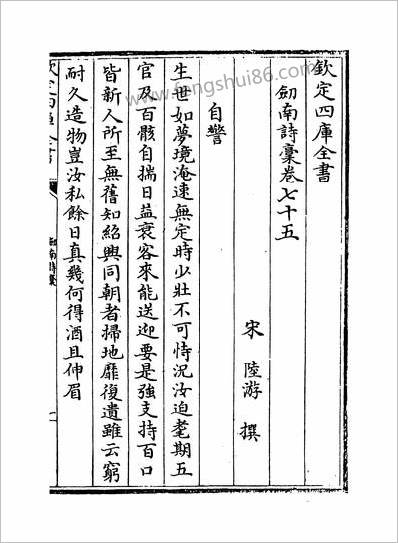 欽定四庫全書
劒南詩稾卷七十五
宋 陸游 撰
自警
生世如夢境淹速無定時少壯不可恃況汝迫耄期五
官及百骸自揣日益衰客來能送迎要是強支持百口
皆新人所至無舊知紹興同朝者掃地靡復遺雖云窮
耐久造物豈汝私餘日真幾何得酒且伸眉
www.fengshui86.com